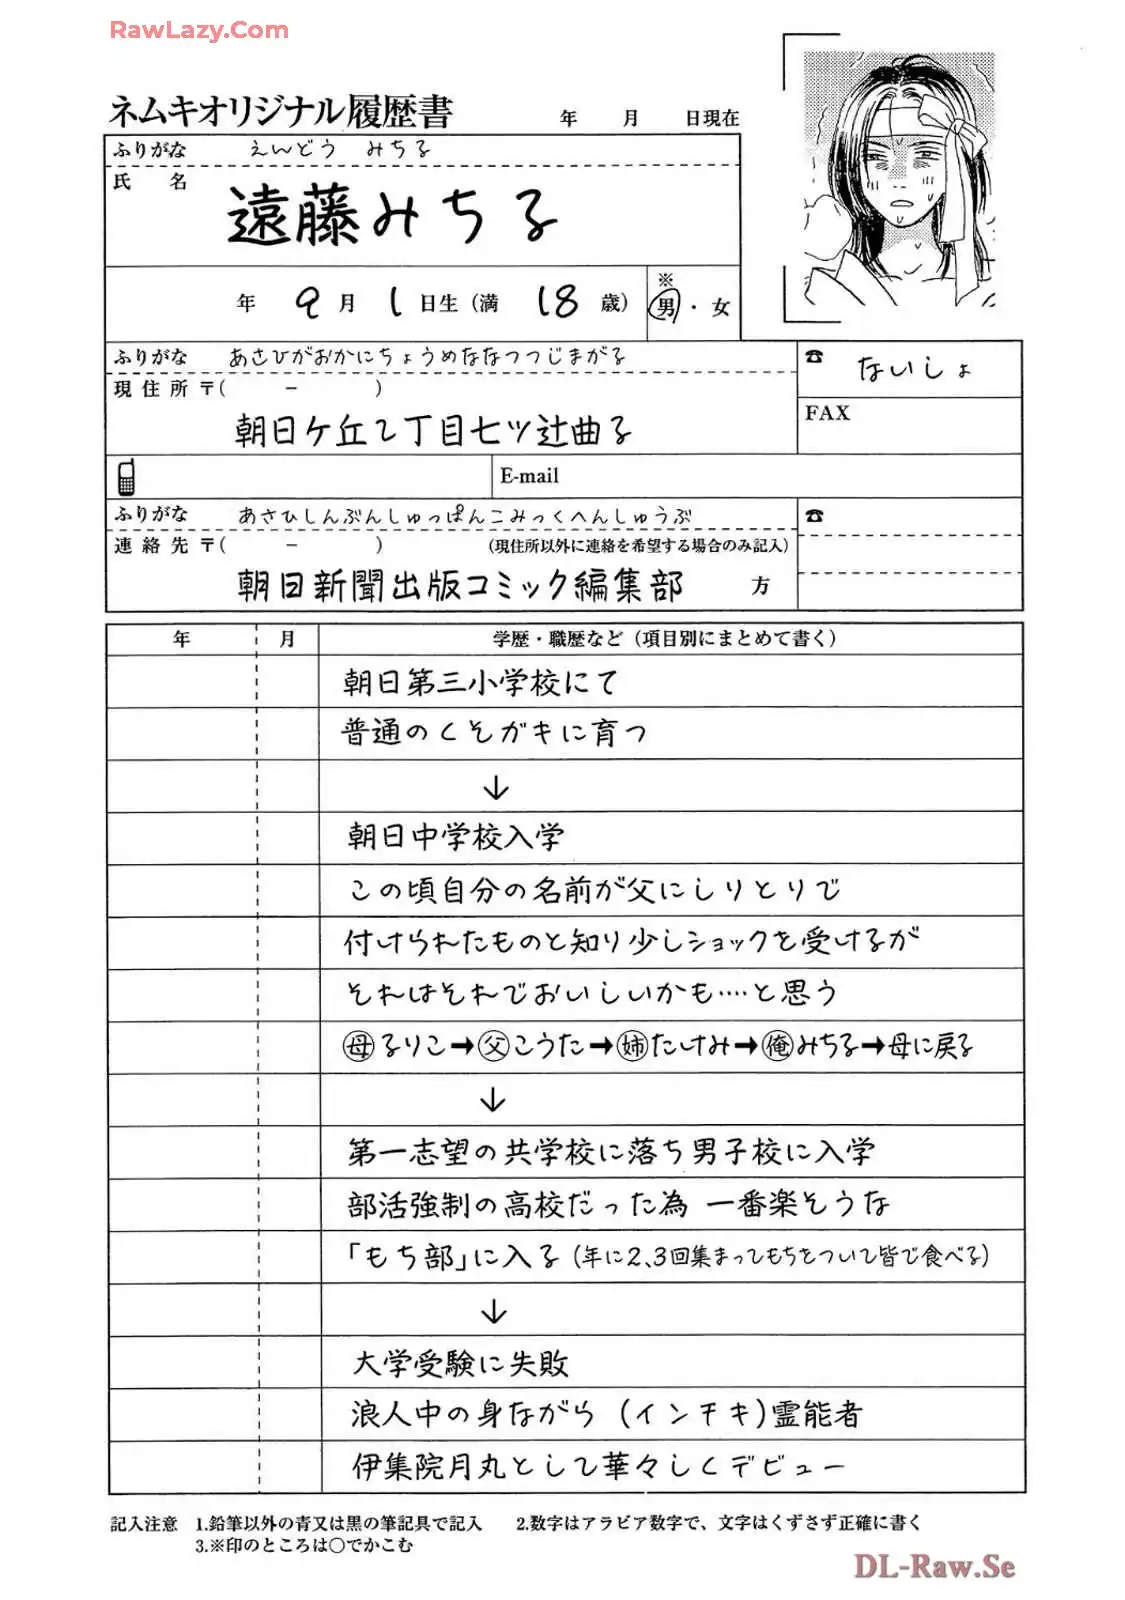 RawLazy.Com
ネムキオリジナル履歴書 年 月 日現在
ふりがな えんどう みちる
氏 名
遠藤みちる
年 9月 1日生(満 18歳) ※ 男・女
ふりがな あさひがおかにちょうめななつつじまがる
☎ ないしょ
現 住 所 〒( − )
FAX
朝日ケ丘2丁目七ツ辻曲る
E-mail
ふりがな あさひしんぶんしゅっぱんこみっくへんしゅうぶ
☎
連 絡 先 〒( − ) (現住所以外に連絡を希望する場合のみ記入)
朝日新聞出版コミック編集部 方
年 月 学歴・職歴など(項目別にまとめて書く)
朝日第三小学校にて
普通のくそガキに育つ
↓
朝日中学校入学
この頃自分の名前が父にしりとりで
付けられたものと知り少しショックを受けるが
それはそれでおいしいかも‥‥と思う
母るりこ➡父こうた➡姉たけみ➡俺みちる➡母に戻る
↓
第一志望の共学校に落ち男子校に入学
部活強制の高校だった為 一番楽そうな
「もち部」に入る(年に2、3回集まってもちをついて皆で食べる)
↓
大学受験に失敗
浪人中の身ながら (インチキ)霊能者
伊集院月丸として華々しくデビュー
記入注意 1.鉛筆以外の青又は黒の筆記具で記入 2.数字はアラビア数字で、文字はくずさず正確に書く
3.※印のところは○でかこむ
DL-Raw.Se